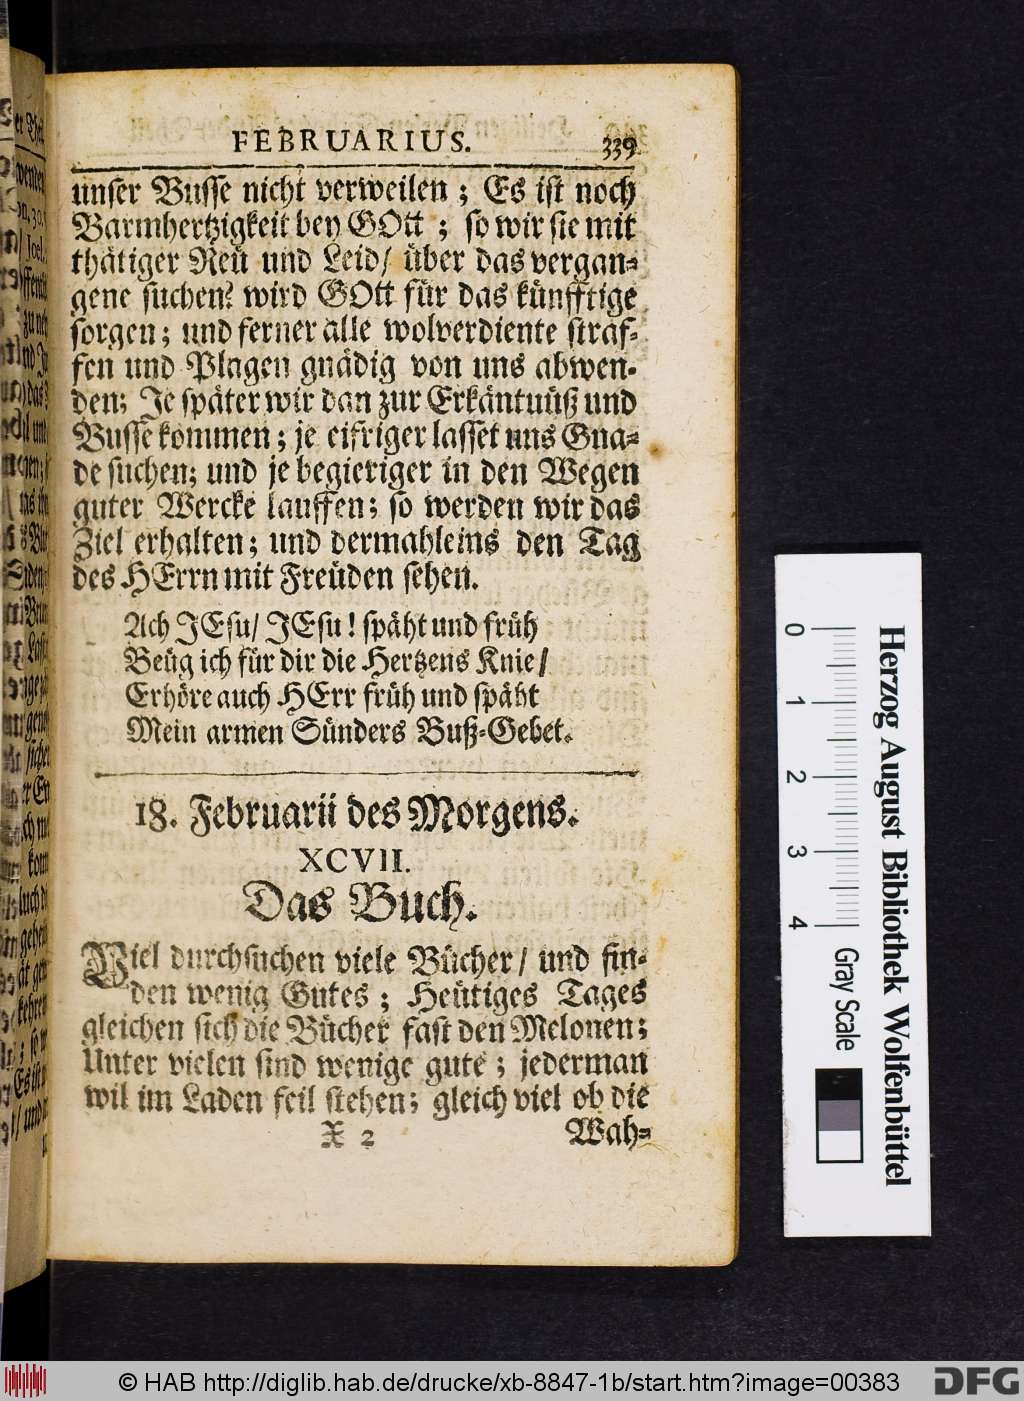 FEBRUARIUS. 339
unser Busse nicht verweilen ; Es ist noch
Barmhertzigkeit bey GOtt ; so wir sie mit
thätiger Reü und Leid/ über das vergan=
gene suchen? wird GOtt für das künfftige
sorgen; und ferner alle wolverdiente straf=
fen und Plagen gnädig von uns abwen=
den; Je später wir dan zur Erkäntnüß und
Busse kommen ; je eifriger lasset uns Gna=
de suchen; und je begieriger in den Wegen
guter Wercke lauffen; so werden wir das
Ziel erhalten; und dermahleins den Tag
des HErrn mit Freüden sehen.
Ach JEsu/ JEsu! späht und früh
Beüg ich für dir die Hertzens Knie/
Erhöre auch HErr früh und späht
Mein armen Sünders Buß=Gebet.
18. Februarii des Morgens.
XCVII.
Das Buch.
Viel durchsuchen viele Bücher/ und fin=
den wenig Gutes ; Heütiges Tages
gleichen sich die Bücher fast den Melonen;
Unter vielen sind wenige gute ; jederman
wil im Laden feil stehen; gleich viel ob die
X 2 Wah=
0 1 2 3 4
Gray Scale
Herzog August Bibliothek Wolfenbüttel
© HAB http://diglib.hab.de/drucke/xb-8847-1b/start.htm?image=00383
DFG